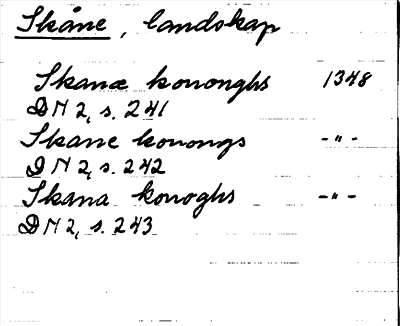 Skåne, landskap
Skanæ kononghs 1348
DN 2, s. 241
Skane konongs -"-
DN 2, s. 242
Skana konoghs -"-
DN 2, s. 243